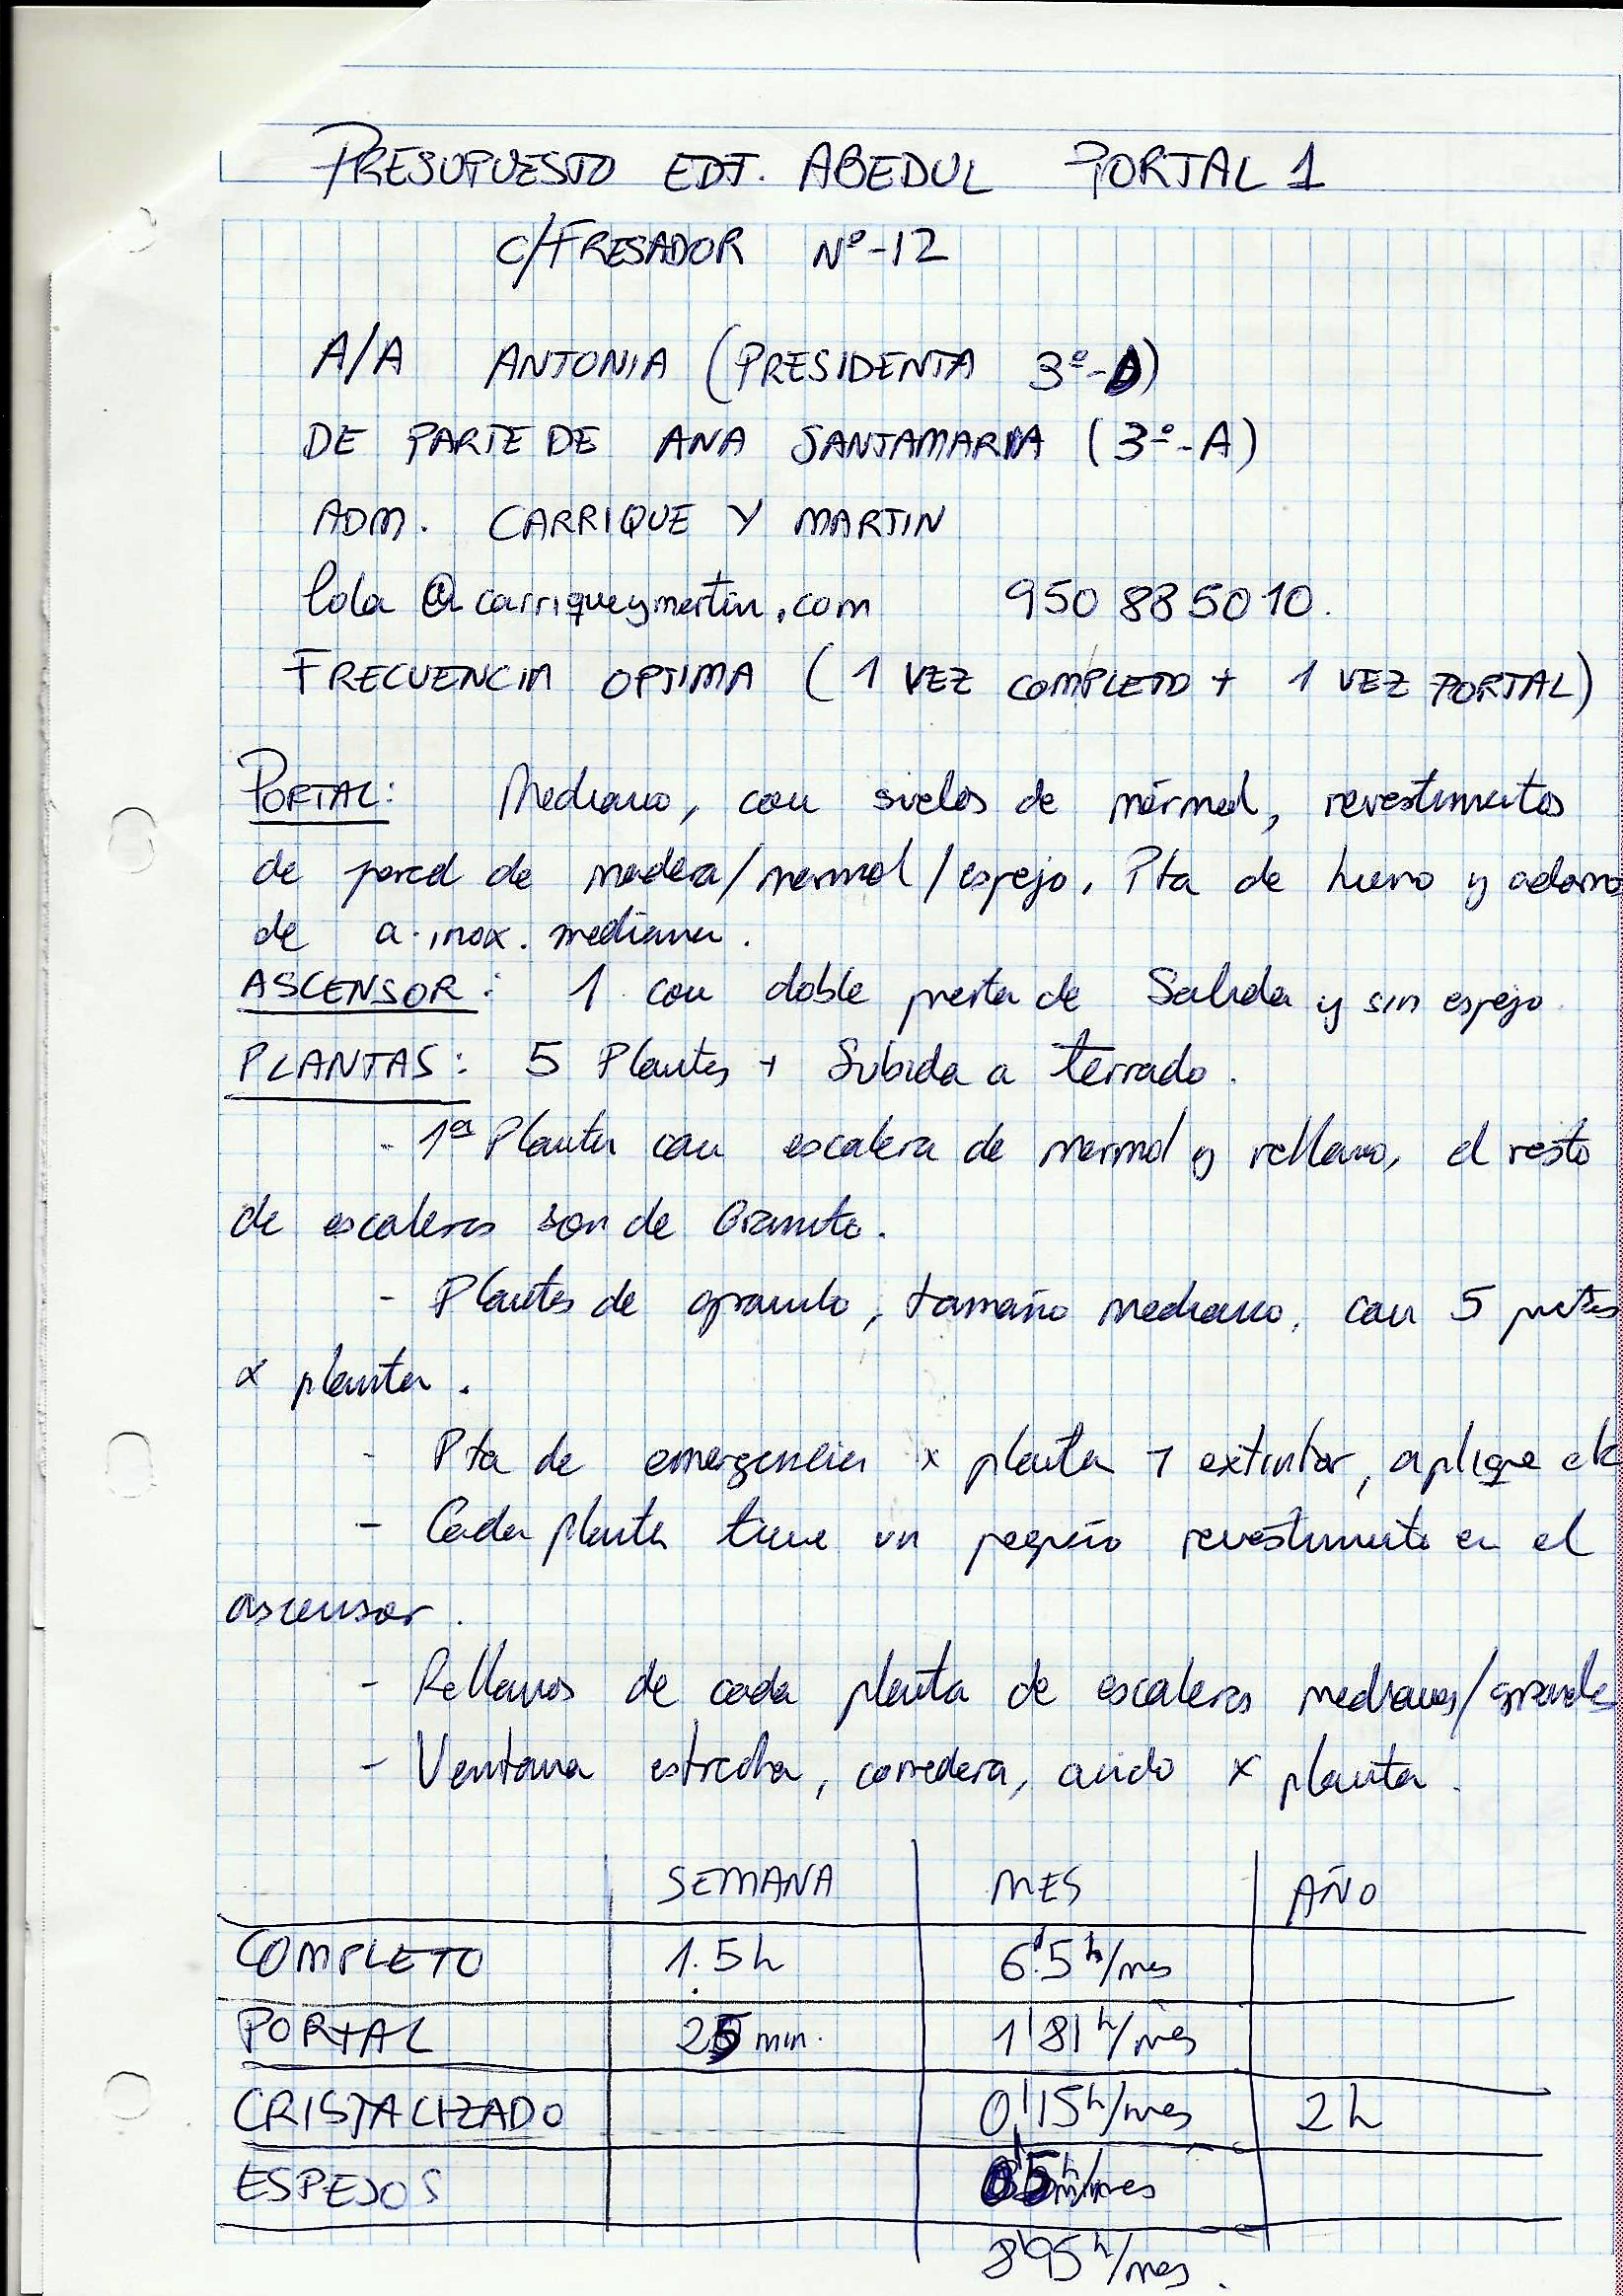 PRESUPUESTO EDF. ABEDUL PORTAL 1
C/FRESADOR Nº-12
A/A ANTONIA (PRESIDENTA 3º-D)
DE PARTE DE ANA SANTAMARIA (3º-A)
ADM. CARRIQUE Y MARTIN
lola@carriqueymartin.com 950 88 50 10.
FRECUENCIA OPTIMA (1 VEZ COMPLETO + 1 VEZ PORTAL)
PORTAL: Mediano, con suelos de mármol, revestimientos
de pared de madera/marmol/espejo. Pta de hierro y adorno
de a. inox. mediana.
ASCENSOR: 1 con doble puerta de Salida y sin espejo
PLANTAS: 5 Plantas + Subida a terrado.
- 1ª Planta con escalera de marmol y rellano, el resto
de escaleras son de Granito.
- Plantas de granito, tamaño mediano, con 5 puertas
x planta.
- Pta de emergencia x planta + extintor, aplique etc
- Cada planta tiene un pequeño revestimiento en el
ascensor.
- Rellanos de cada planta de escaleras medianos/grandes
- Ventana estrecha, corredera, x planta.
SEMANA MES AÑO
COMPLETO 1.5h 6'5 h/mes
PORTAL 25 min. 1'81 h/mes
CRISTALIZADO 0'15 h/mes 2h
ESPEJOS 0'5 h/mes
8'95 h/mes.